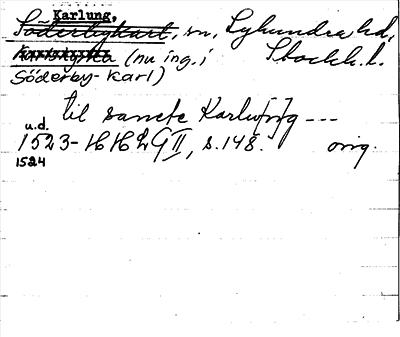 Karlung,
Söderbykarl, sn, Lyhundra hd,
(nu ing. i Stockh. l.
Söderby-Karl)
til sancte Karlu[n]g ---
u.d.
1523- HH2 G II, s. 148. orig.
1524